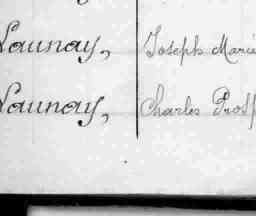 Launay, Joseph Marie
Launay, Charles Prosp